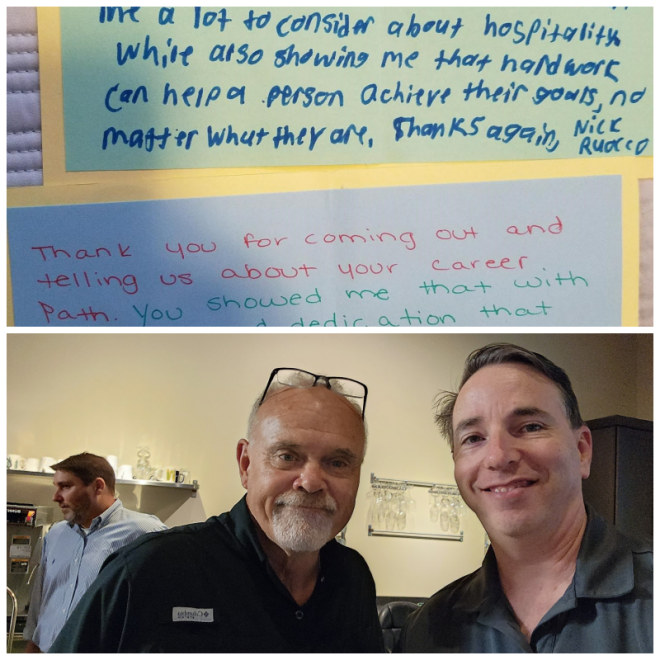 me a lot to consider about hospitality
while also showing me that hard work
can help a person achieve their goals, no
matter what they are. Thanks again, Nick
Ruocco
Thank you for coming out and
telling us about your career
Path. You showed me that with
dedication that